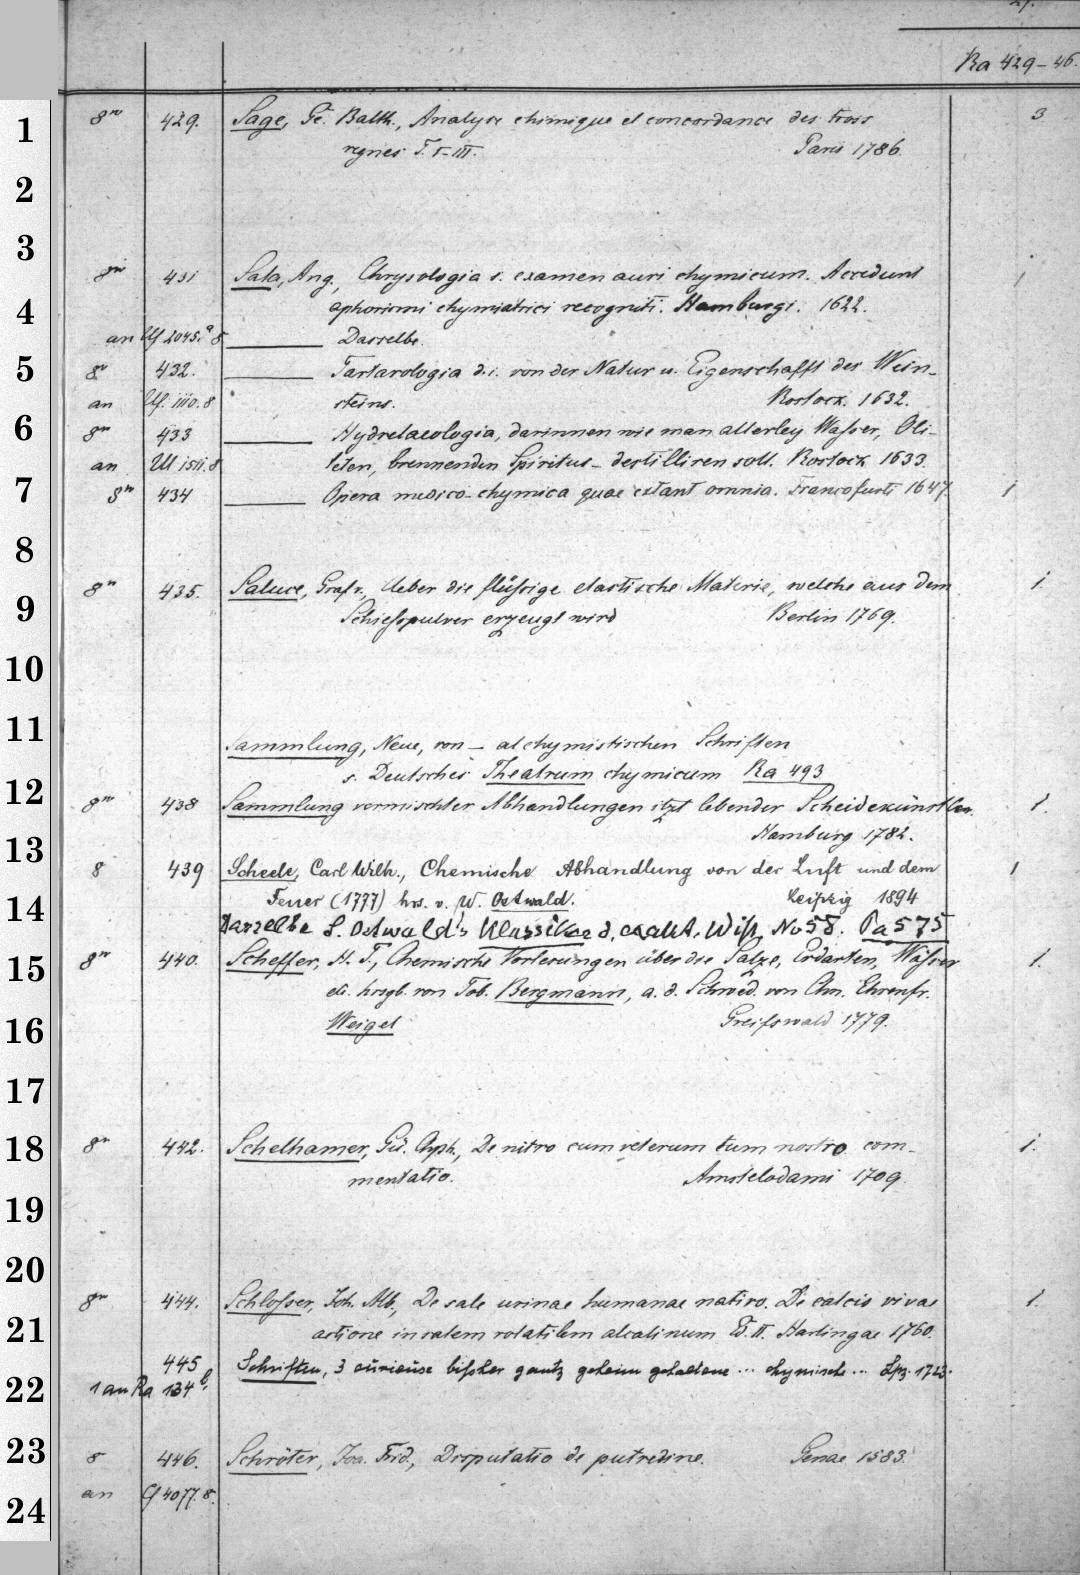 Ra 429-46
8º 429. Sage, Ge. Balth., Analyse chimique et concordance des trois 3
regnes T. I-III. Paris 1786.
8º 431 Sala, Ang., Chrysologia s. examen auri chymicum. Accedunt 1
aphorismi chymiatrici recogniti. Hamburgi. 1622.
an 2045.ª 8 Dasselbe.
8º 432. Tartarologia d.i. von der Natur u. Eigenschafft des Wein-
an 1110.8 steins. Rostock. 1632.
8º 433 Hydrelaeologia, darinnen wie man allerley Wasser, Oli-
an 1511.8 teten, brennenden Spiritus destilliren soll. Rostock 1633.
8º 434 Opera medico-chymica quae extant omnia. Francofurti 1647. 1
8º 435. Saluce, Graf v., Ueber die flüßige elastische Materie, welche aus dem 1
Schiesspulver erzeugt wird Berlin 1769.
Sammlung, Neue, von — alchymistischen Schriften
s. Deutsches Theatrum chymicum Ra 493
8º 438 Sammlung vermischter Abhandlungen itzt lebender Scheidekünstler. 1.
Hamburg 1782.
8 439 Scheele, Carl Wilh., Chemische Abhandlung von der Luft und dem 1
Feuer (1777) hrs. v. W. Ostwald. Leipzig 1894
Dasselbe s. Ostwald's Klassiker d. exakt. Wiss. No 58. Pa 575
8º 440. Scheffer, H. T., Chemische Vorlesungen über die Salze, Erdarten, Wässer 1.
etc. hrsgb. von Tob. Bergmann, a. d. Schwed. von Chn. Ehrenfr.
Weigel Greifswald 1779.
8º 442. Schelhamer, Gü. Chph., De nitro cum veterum tum nostro com- 1.
mentatio. Amstelodami 1709.
8º 444. Schlosser, Joh. Alb., De sale urinae humanae nativo. De calcis vivae 1.
actione in salem volatilem alcalinum Ed. II. Harlingae 1760.
445 Schriften, 3 curieuse bißher gantz geheim gehaltene ... chymische ... Lpz.
1 an Ra 134 b.
8 446. Schröter, Joa. Frid., Disputatio de putredine. Genae 1583.
an 4077.8.
1
2
3
4
5
6
7
8
9
10
11
12
13
14
15
16
17
18
19
20
21
22
23
24